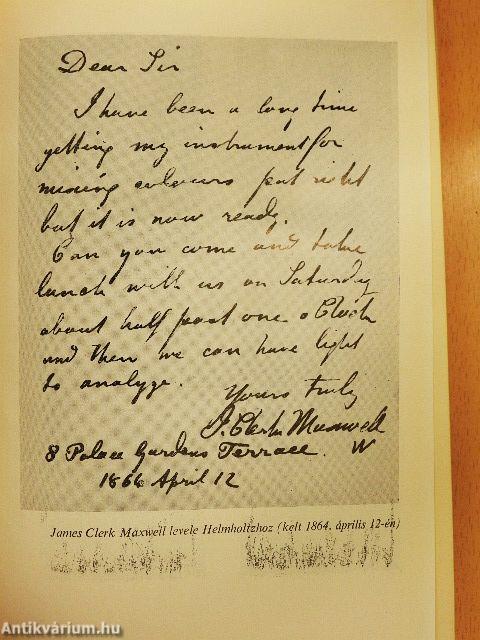 Dear Sir
I have been a long time
getting my instrument for
mixing colours put right
but it is now ready.
Can you come and take
lunch with us on Saturday
about half past one o Clock
and then we can have light
to analyze.
Yours truly
J. Clerk Maxwell
8 Palace Gardens Terrace. W
1864 April 12
James Clerk Maxwell levele Helmholtzhoz (kelt 1864. április 12-én)
Antikvárium.hu